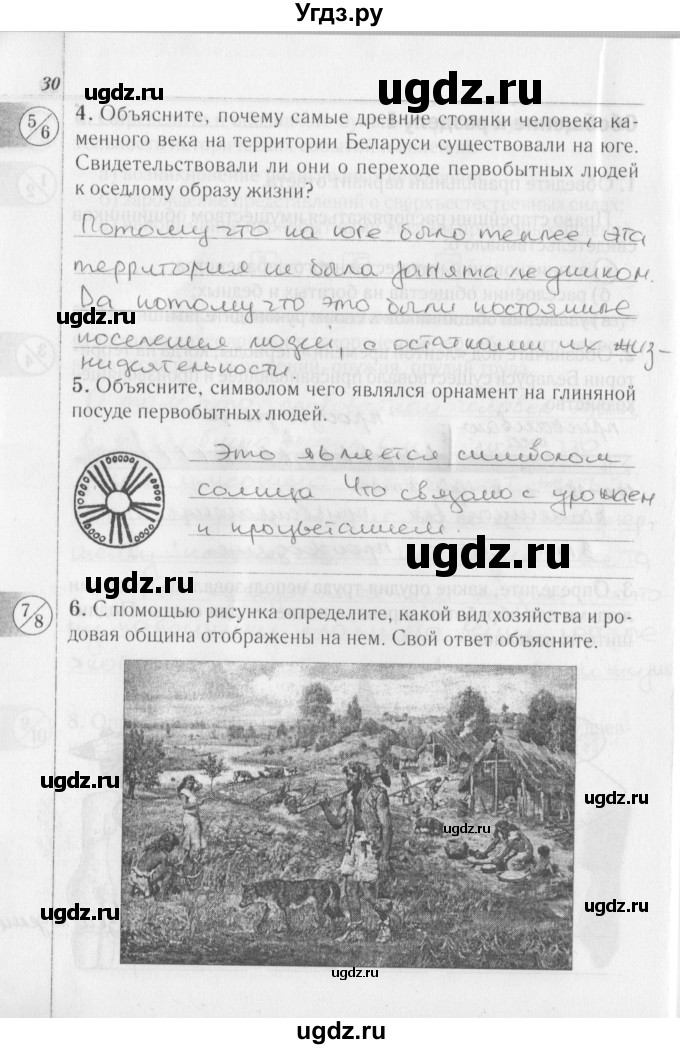 Угдз.ру
30
ugdz.ru
ugdz.ru
5/6
4. Объясните, почему самые древние стоянки человека ка-
менного века на территории Беларуси существовали на юге.
Свидетельствовали ли они о переходе первобытных людей
к оседлому образу жизни?
Потому что на юге было теплее, эта
территория не была занята ледником.
Да потому что это были постоянные
ugdz.ru
ugdz.ru
поселения людей, с остатками их жиз-
недеятельности.
5. Объясните, символом чего являлся орнамент на глиняной
посуде первобытных людей.
Это является символом
ugdz.ru
солнца Что связано с урожаем
и процветанием.
ugdz.ru
ugdz.ru
7/8
6. С помощью рисунка определите, какой вид хозяйства и ро-
довая община отображены на нем. Свой ответ объясните.
ugdz.ru
ugdz.ru
ugdz.ru
ugdz.ru
ugdz.ru
ugdz.ru
ugdz.ru